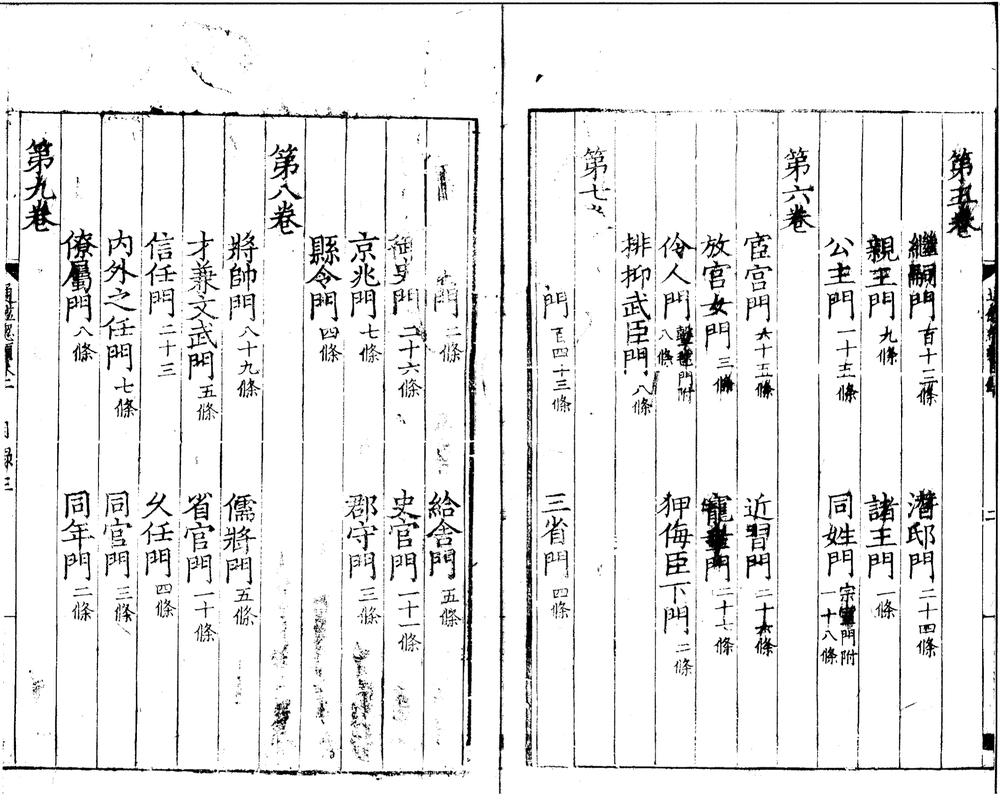 第五卷
繼嗣門 百十三條 潛邸門 二十四條
親王門 九條 諸王門 一條
公主門 一十五條 同姓門 宗室門附 一十八條
第六卷
宦官門 六十五條 近習門 二十六條
放宮女門 三條 門 二十七條
伶人門 門附 八條 狎侮臣下門 二條
排抑武臣門 八條
第七
門 百四十三條 三省門 四條
門 二條 給舍門 五條
門 二十六條 史官門 一十一條
京兆門 七條 郡守門 三條
縣令門 四條
第八卷
將帥門 八十九條 儒將門 五條
才兼文武門 五條 省官門 一十條
信任門 二十三 久任門 四條
內外之任門 七條 同官門 三條
僚屬門 八條 同年門 二條
第九卷
目錄三